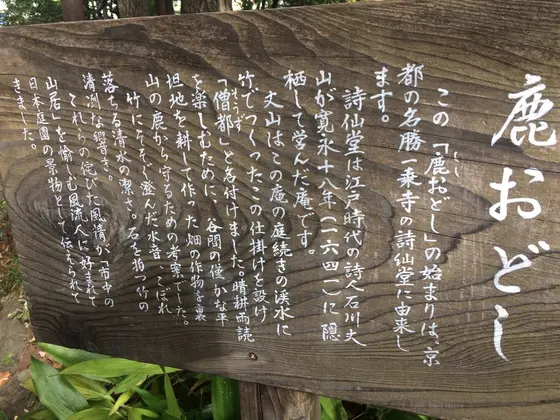 鹿おどし
この「鹿おどし」の始まりは、京
しし
都の名勝一乗寺の詩仙堂に由来し
ます。
詩仙堂は江戸時代の詩人石川丈
山が寛永十八年(一六四一)に隠
栖して学んだ庵です。
丈山はこの庵の庭続きの渓水に
竹でつくったこの仕掛けを設け
「僧都」と名付けました。晴耕雨読
そうず
を楽しむために、谷間の僅かな平
坦地を耕して作った畑の作物を裏
山の鹿から守るための考案でした。
竹にそそぐ澄んだ水音、こぼれ
落ちる清水の潔さ。石を拍つ竹の
清冽な響き。
これらの侘びた風情が「市中の
山居」を愉しむ風流人に好まれて
日本庭園の景物として伝えられて
きました。